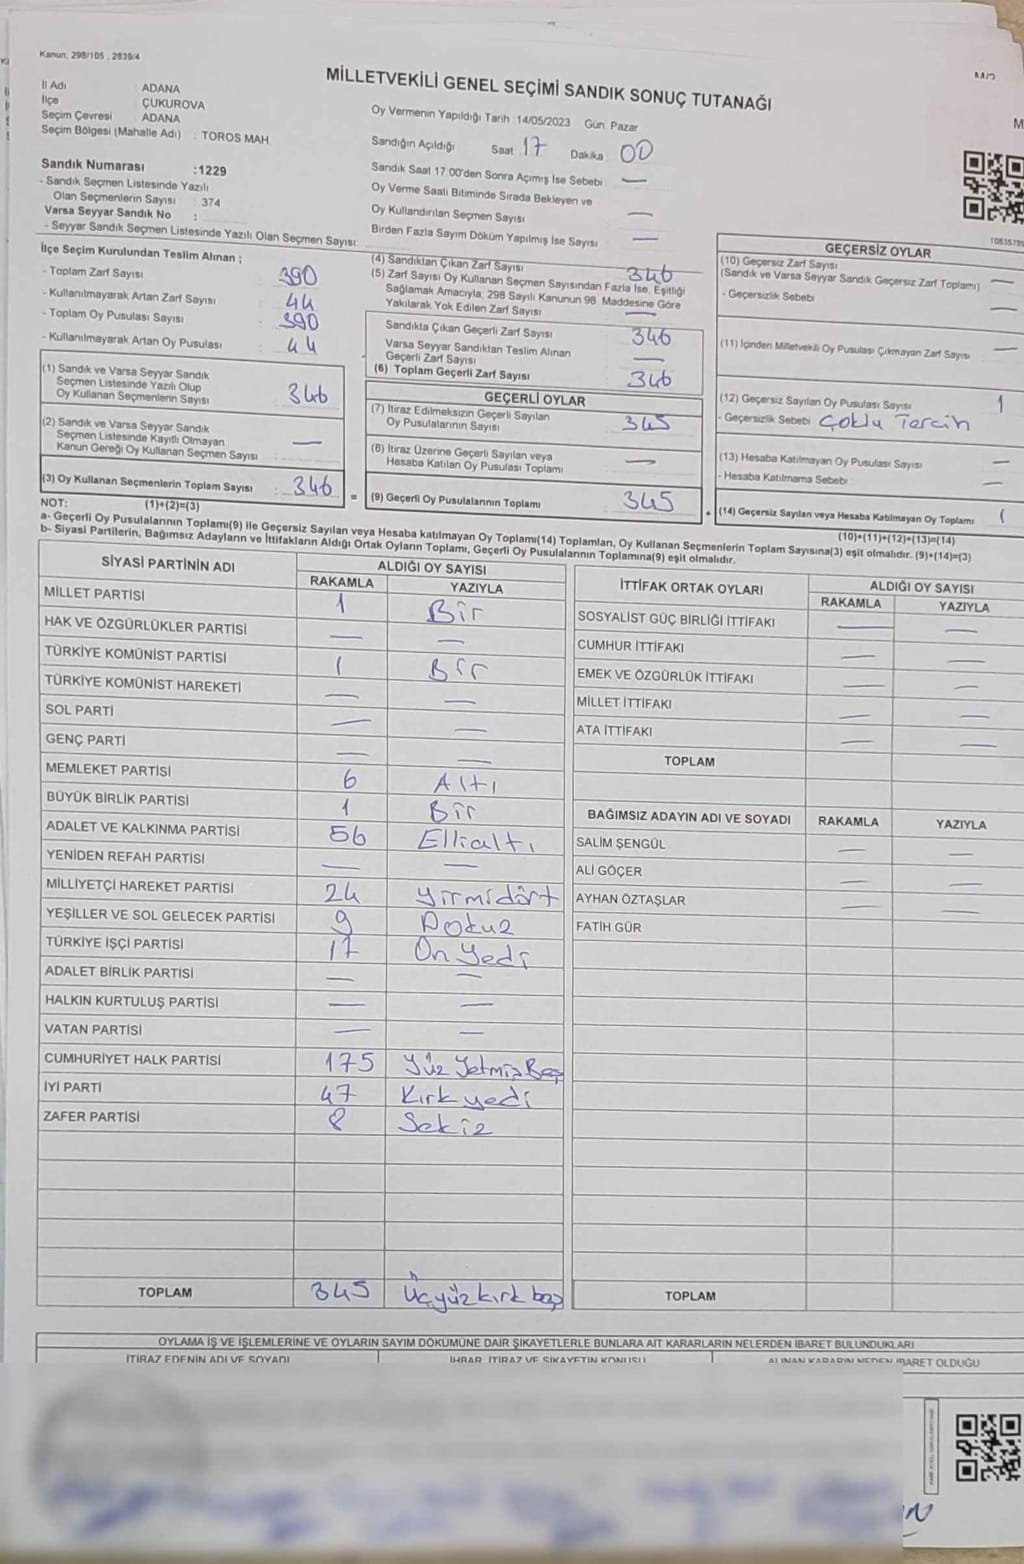 Kanun, 298/105 , 2839/4
MİLLETVEKİLİ GENEL SEÇİMİ SANDIK SONUÇ TUTANAĞI
İl Adı ADANA
İlçe ÇUKUROVA
Seçim Çevresi ADANA
Seçim Bölgesi (Mahalle Adı) : TOROS MAH
Sandık Numarası :1229
- Sandık Seçmen Listesinde Yazılı
Olan Seçmenlerin Sayısı : 374
Varsa Seyyar Sandık No :
- Seyyar Sandık Seçmen Listesinde Yazılı Olan Seçmen Sayısı:
Oy Vermenin Yapıldığı Tarih :14/05/2023 Gün: Pazar
Sandığın Açıldığı Saat: 17 Dakika: 00
Sandık Saat 17.00'den Sonra Açımış İse Sebebi —
Oy Verme Saati Bitiminde Sırada Bekleyen ve
Oy Kullandırılan Seçmen Sayısı —
Birden Fazla Sayım Döküm Yapılmış İse Sayısı —
İlçe Seçim Kurulundan Teslim Alınan ;
- Toplam Zarf Sayısı : 390
- Kullanılmayarak Artan Zarf Sayısı : 44
- Toplam Oy Pusulası Sayısı : 390
- Kullanılmayarak Artan Oy Pusulası : 44
(1) Sandık ve Varsa Seyyar Sandık
Seçmen Listesinde Yazılı Olup
Oy Kullanan Seçmenlerin Sayısı : 346
(2) Sandık ve Varsa Seyyar Sandık
Seçmen Listesinde Kayıtlı Olmayan
Kanun Gereği Oy Kullanan Seçmen Sayısı : —
(3) Oy Kullanan Seçmenlerin Toplam Sayısı : 346
(4) Sandıktan Çıkan Zarf Sayısı 346
(5) Zarf Sayısı Oy Kullanan Seçmen Sayısından Fazla İse, Eşitliği
Sağlamak Amacıyla, 298 Sayılı Kanunun 98. Maddesine Göre
Yakılarak Yok Edilen Zarf Sayısı —
Sandıkta Çıkan Geçerli Zarf Sayısı 346
Varsa Seyyar Sandıktan Teslim Alınan
Geçerli Zarf Sayısı —
(6) Toplam Geçerli Zarf Sayısı 346
GEÇERLİ OYLAR
(7) İtiraz Edilmeksizin Geçerli Sayılan
Oy Pusulalarının Sayısı 345
(8) İtiraz Üzerine Geçerli Sayılan veya
Hesaba Katılan Oy Pusulası Toplamı —
= (9) Geçerli Oy Pusulalarının Toplamı 345
GEÇERSİZ OYLAR
(10) Geçersiz Zarf Sayısı
(Sandık ve Varsa Seyyar Sandık Geçersiz Zarf Toplamı) —
- Geçersizlik Sebebi —
(11) İçinden Milletvekili Oy Pusulası Çıkmayan Zarf Sayısı —
(12) Geçersiz Sayılan Oy Pusulası Sayısı 1
- Geçersizlik Sebebi Çoklu Tercih
(13) Hesaba Katılmayan Oy Pusulası Sayısı —
- Hesaba Katılmama Sebebi —
+ (14) Geçersiz Sayılan veya Hesaba Katılmayan Oy Toplamı 1
NOT: (1)+(2)=(3)
(10)+(11)+(12)+(13)=(14)
a- Geçerli Oy Pusulalarının Toplamı(9) ile Geçersiz Sayılan veya Hesaba katılmayan Oy Toplamı(14) Toplamları, Oy Kullanan Seçmenlerin Toplam Sayısına(3) eşit olmalıdır. (9)+(14)=(3)
b- Siyasi Partilerin, Bağımsız Adayların ve İttifakların Aldığı Ortak Oyların Toplamı, Geçerli Oy Pusulalarının Toplamına(9) eşit olmalıdır.
SİYASİ PARTİNİN ADI ALDIĞI OY SAYISI
RAKAMLA YAZIYLA
MİLLET PARTİSİ 1 Bir
HAK VE ÖZGÜRLÜKLER PARTİSİ — —
TÜRKİYE KOMÜNİST PARTİSİ 1 Bir
TÜRKİYE KOMÜNİST HAREKETİ — —
SOL PARTİ — —
GENÇ PARTİ — —
MEMLEKET PARTİSİ 6 Altı
BÜYÜK BİRLİK PARTİSİ 1 Bir
ADALET VE KALKINMA PARTİSİ 56 Ellialtı
YENİDEN REFAH PARTİSİ — —
MİLLİYETÇİ HAREKET PARTİSİ 24 Yirmidört
YEŞİLLER VE SOL GELECEK PARTİSİ 9 Dokuz
TÜRKİYE İŞÇİ PARTİSİ 17 On Yedi
ADALET BİRLİK PARTİSİ — —
HALKIN KURTULUŞ PARTİSİ — —
VATAN PARTİSİ — —
CUMHURİYET HALK PARTİSİ 175 Yüz Yetmiş Beş
İYİ PARTİ 47 Kırkyedi
ZAFER PARTİSİ 8 Sekiz
TOPLAM 345 Üçyüzkırk beş
İTTİFAK ORTAK OYLARI ALDIĞI OY SAYISI
RAKAMLA YAZIYLA
SOSYALİST GÜÇ BİRLİĞİ İTTİFAKI — —
CUMHUR İTTİFAKI — —
EMEK VE ÖZGÜRLÜK İTTİFAKI — —
MİLLET İTTİFAKI — —
ATA İTTİFAKI — —
TOPLAM
BAĞIMSIZ ADAYIN ADI VE SOYADI RAKAMLA YAZIYLA
SALİM ŞENGÜL — —
ALİ GÖÇER — —
AYHAN ÖZTAŞLAR — —
FATİH GÜR
TOPLAM
OYLAMA İŞ VE İŞLEMLERİNE VE OYLARIN SAYIM DÖKÜMÜNE DAİR ŞİKAYETLERLE BUNLARA AİT KARARLARIN NELERDEN İBARET BULUNDUKLARI
İTİRAZ EDENİN ADI VE SOYADI İHBAR, İTİRAZ VE ŞİKAYETİN KONUSU ALINAN KARARIN NEDEN İBARET OLDUĞU